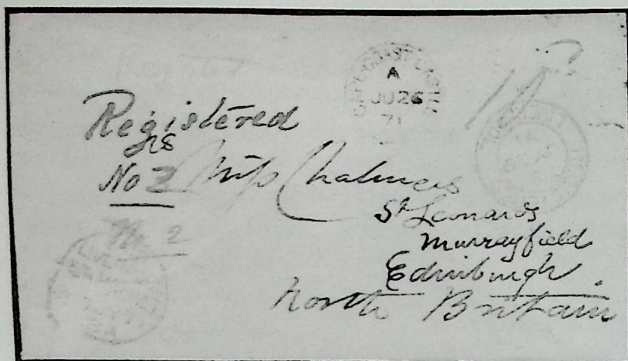 Registered
No 2 Miss Chalmers
No 2
St Leonards
Murrayfield
Edinburgh.
North Britain
A
JU 26
71